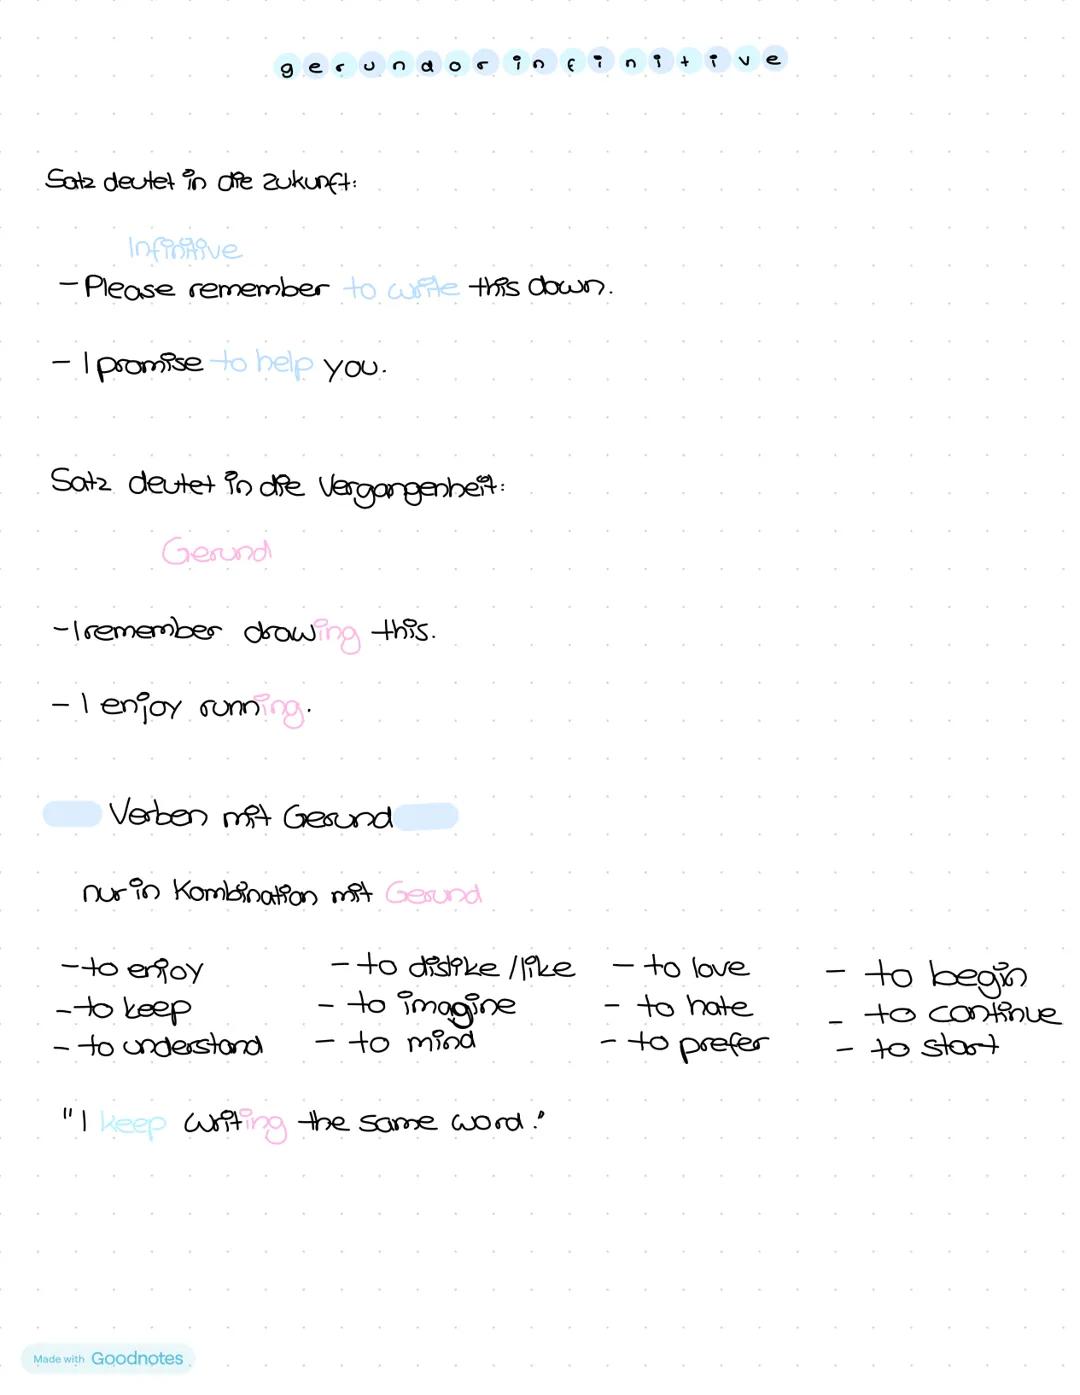 gerund or infinitive
Satz deutet in die Zukunft:
Infinitive
- Please remember to write this down.
- I promise to help you.
Satz deutet in die Vergangenheit:
Gerund
- I remember drawing this.
- I enjoy running.
Verben mit Gerund
nur in Kombination mit Gerund
- to enjoy - to dislike / like - to love - to begin
- to keep - to imagine - to hate - to continue
- to understand - to mind - to prefer - to start
"I keep writing the same word."
Made with Goodnotes